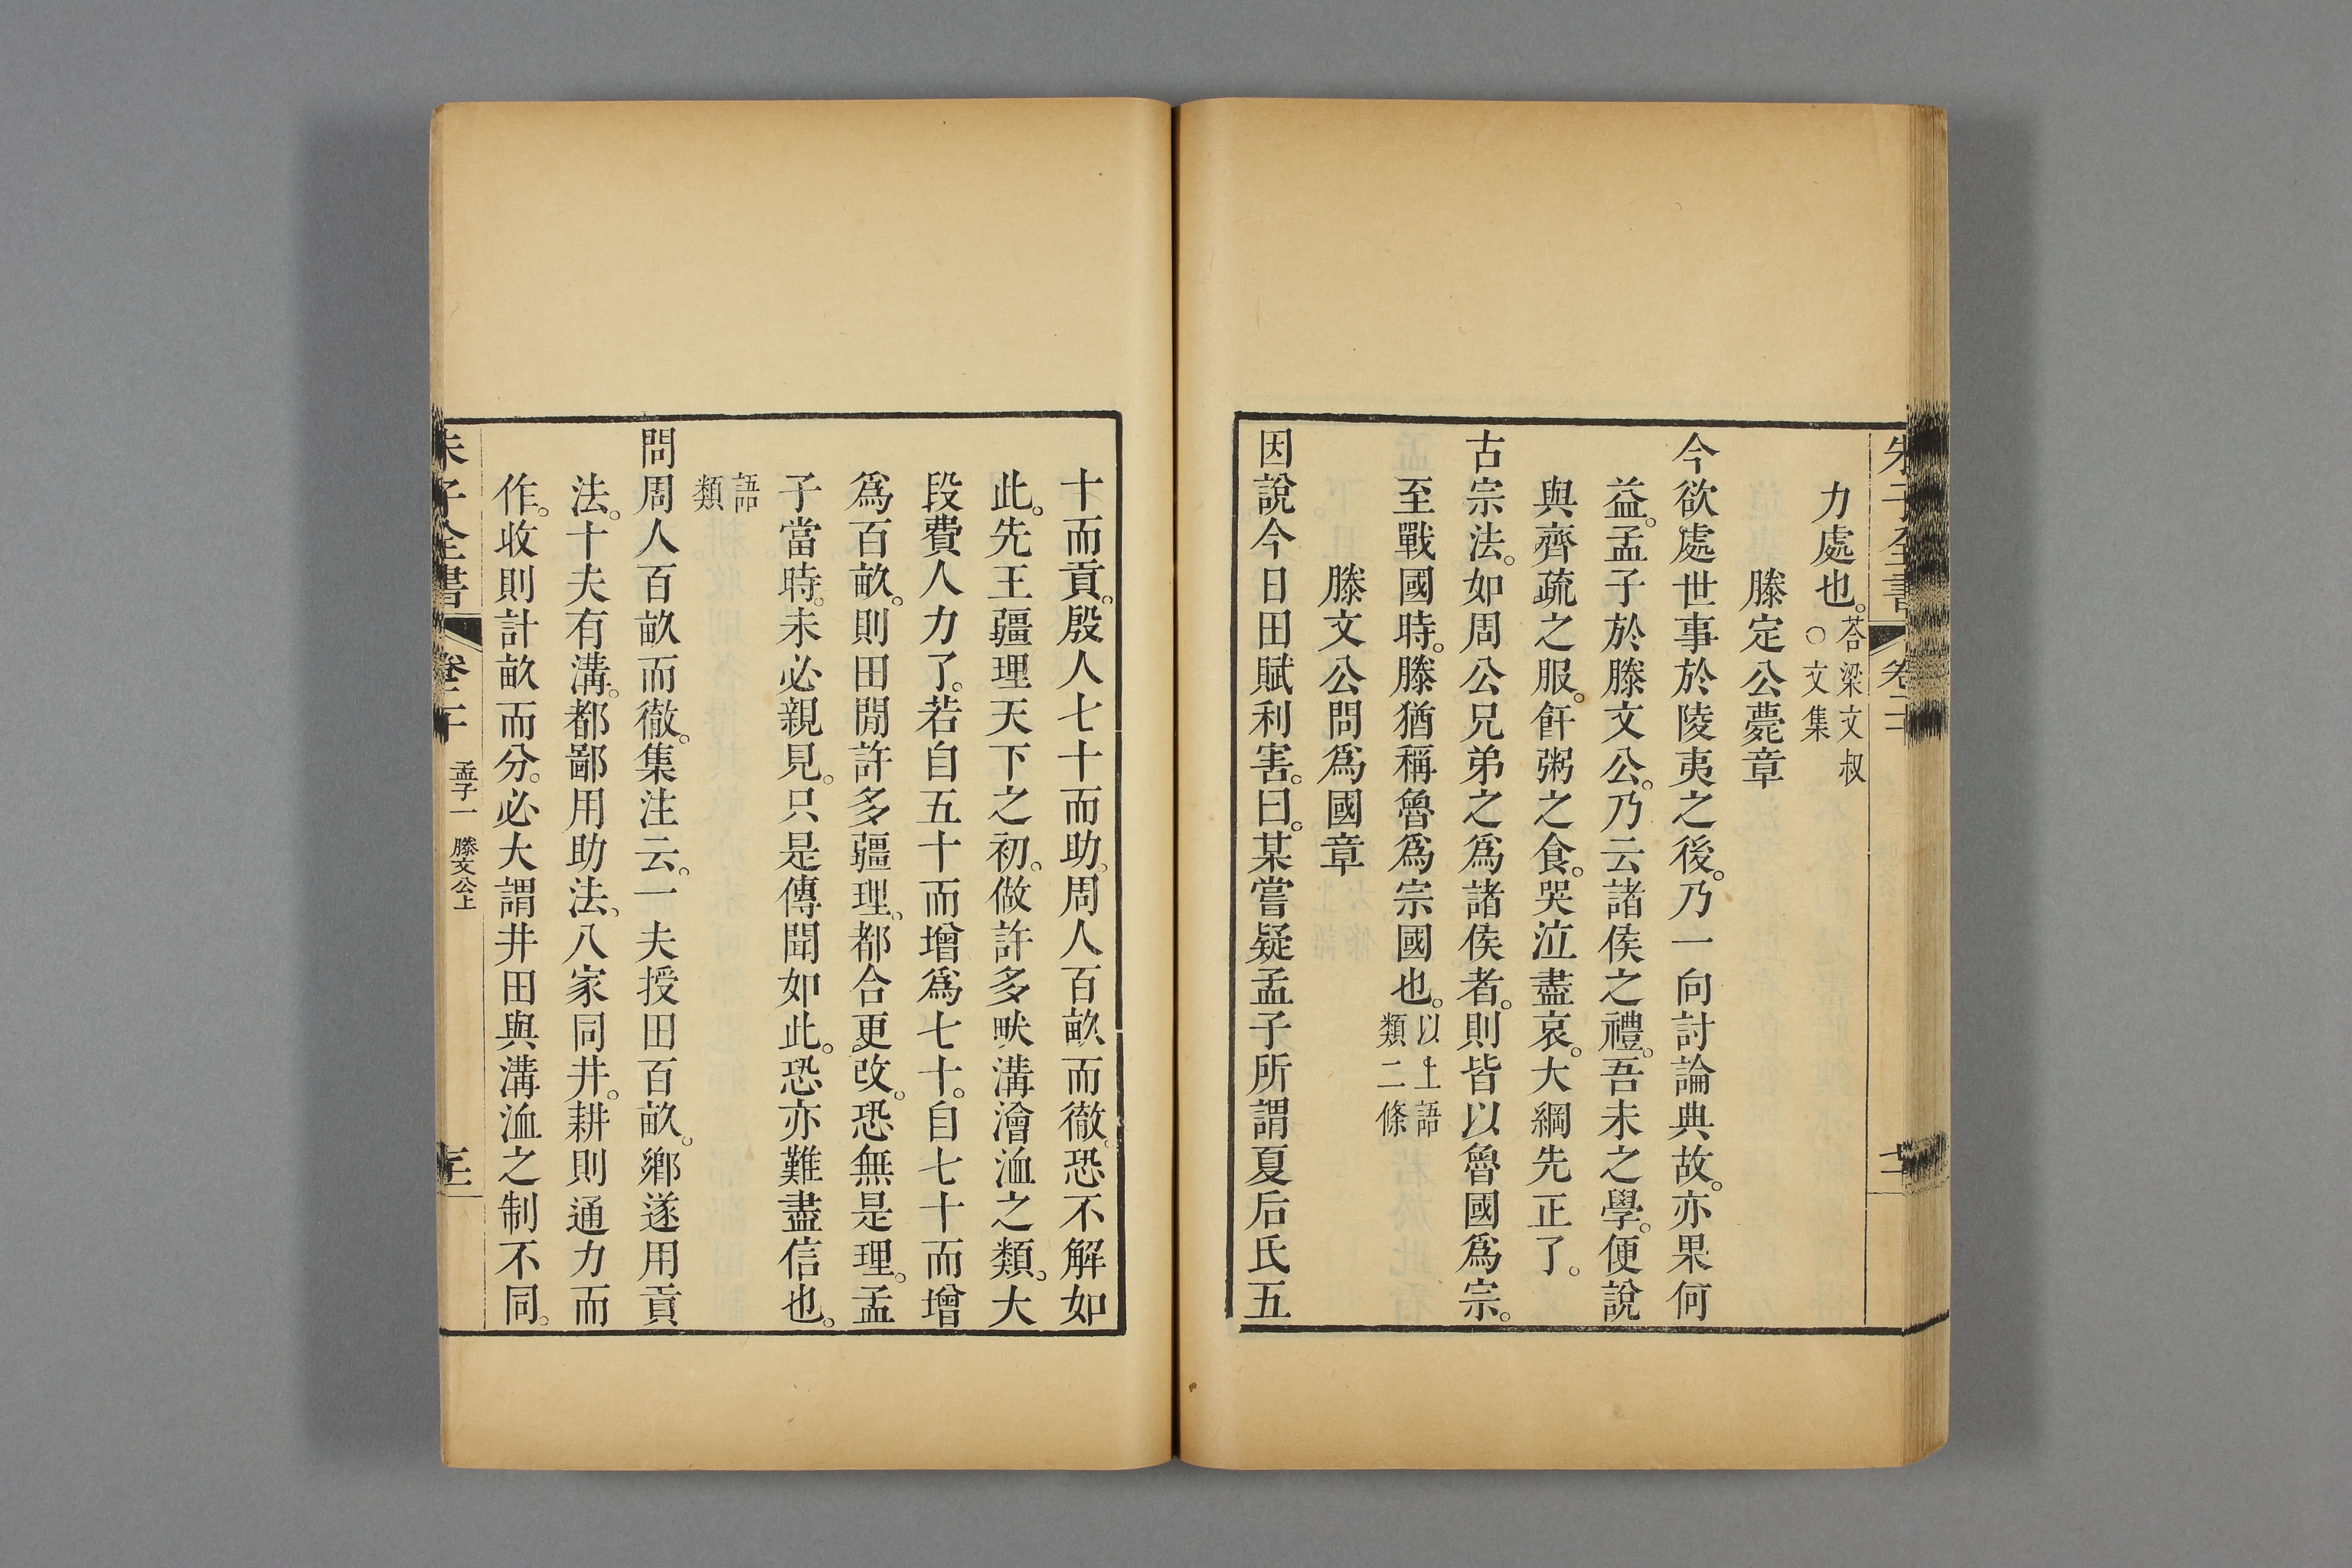 朱子全書 卷二十
力處也。答梁文叔○文集
滕定公薨章
今欲處世事於陵夷之後。乃一向討論典故。亦果何
益。孟子於滕文公。乃云諸侯之禮。吾未之學。便說
與齊疏之服。飦粥之食。哭泣盡哀。大綱先正了。
古宗法。如周公兄弟之爲諸侯者。則皆以魯國爲宗。
至戰國時。滕猶稱魯爲宗國也。以上語類二條
滕文公問爲國章
因說今日田賦利害。曰。某嘗疑孟子所謂夏后氏五
十而貢。殷人七十而助。周人百畝而徹。恐不解如
此。先王疆理天下之初。做許多畎溝澮洫之類。大
段費人力了。若自五十而增爲七十。自七十而增
爲百畝。則田閒許多疆理。都合更改。恐無是理。孟
子當時。未必親見。只是傳聞如此。恐亦難盡信也。
語類
問周人百畝而徹。集注云。一夫授田百畝。鄉遂用貢
法。十夫有溝。都鄙用助法。八家同井。耕則通力而
作。收則計畝而分。必大謂井田與溝洫之制不同。
朱子全書 卷二十 孟子一 滕文公上